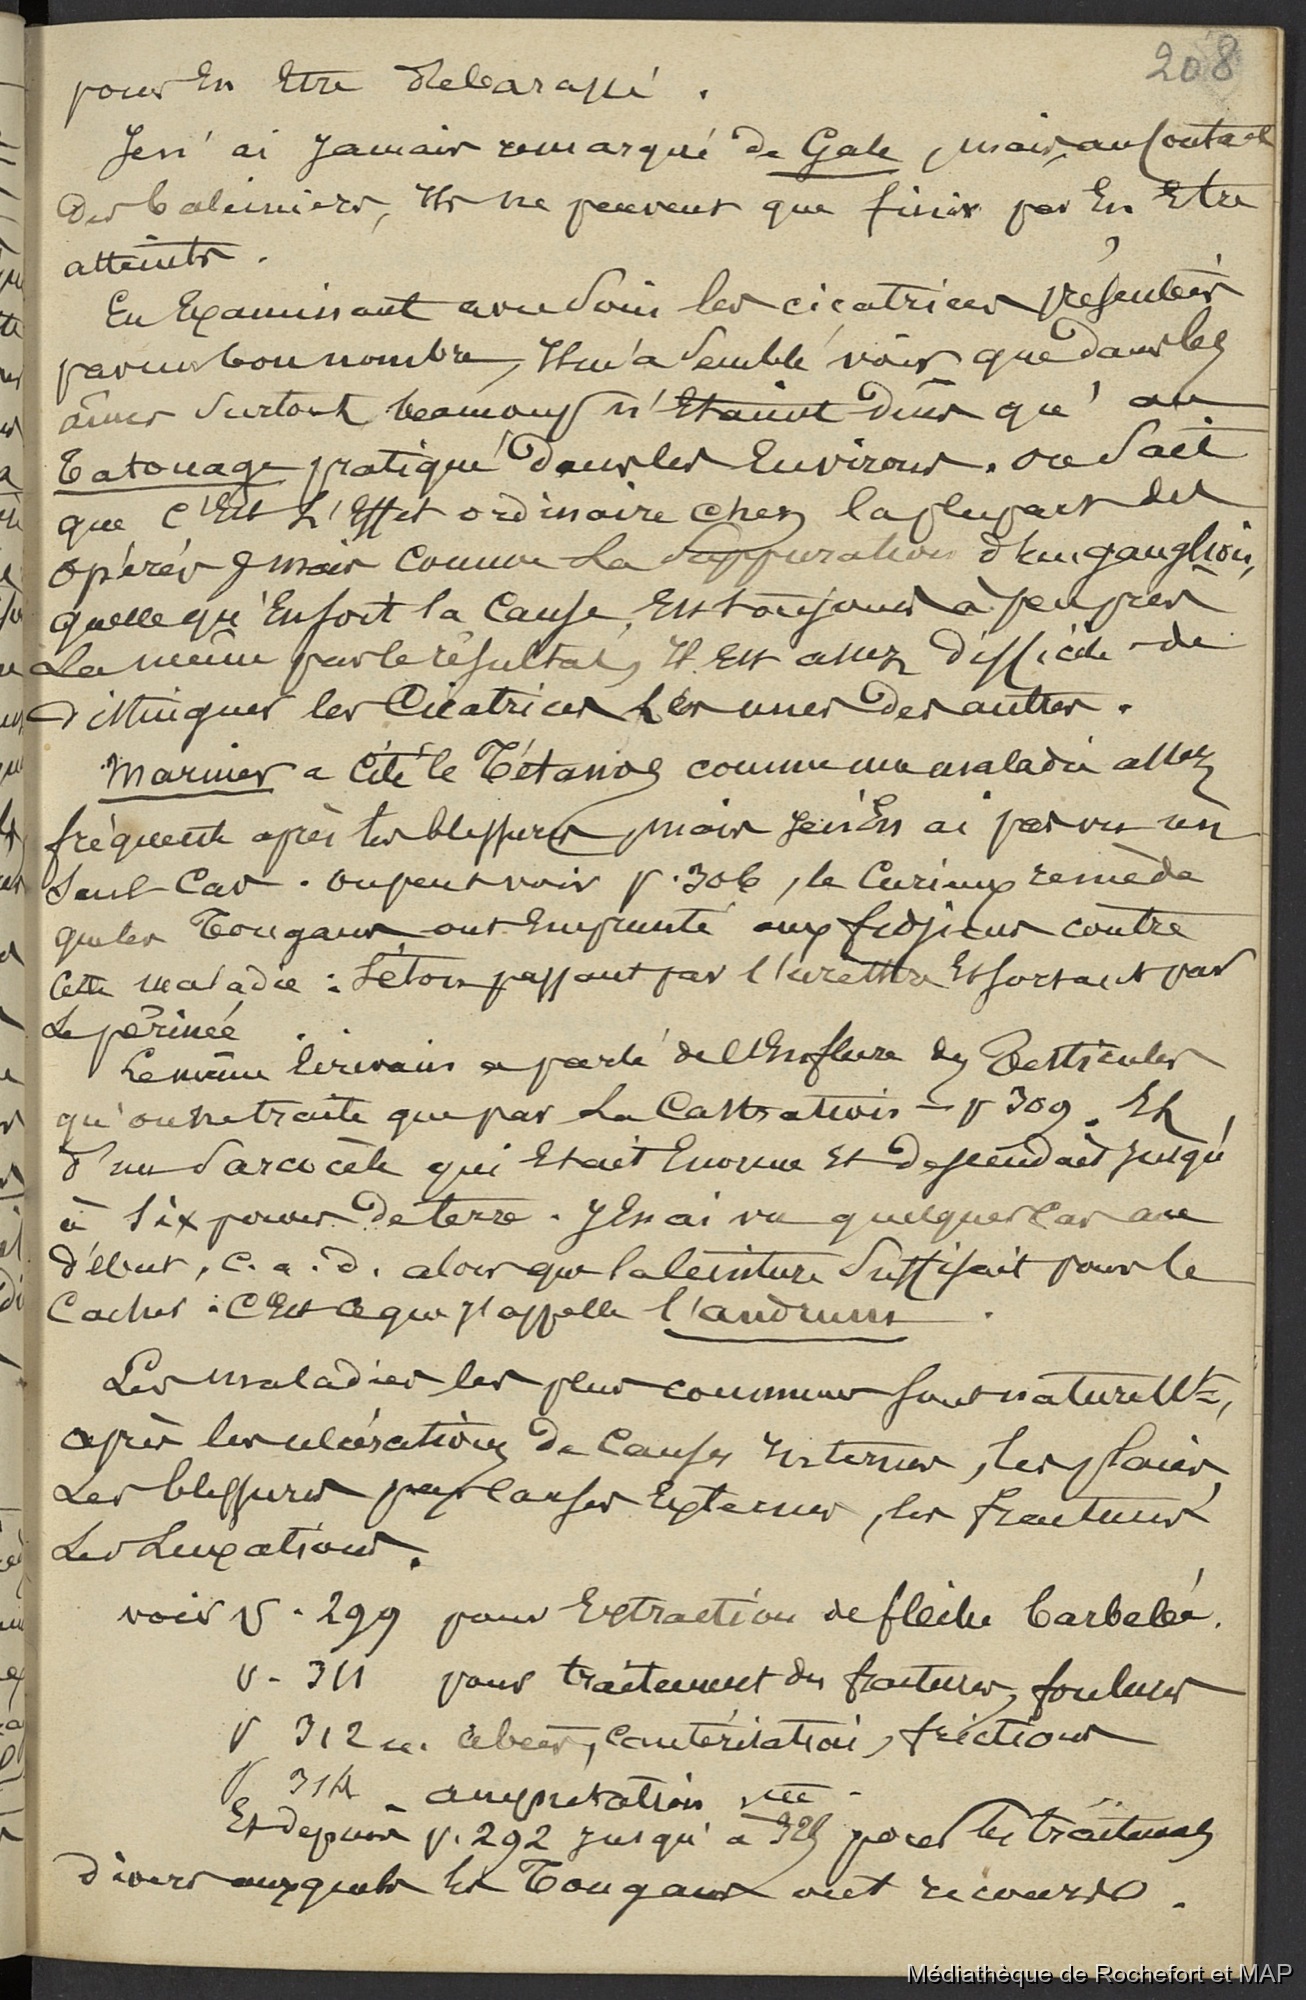 208
pour En Etre débarassé.
Je n'ai Jamais remarqué de Gale, mais au Contact
Des baleiniers, Ils ne peuvent que finir par En Etre
atteints.
En Examinant avec Soin les cicatrices présentées
par un bon nombre, Il m'a Semblé voir que dans les
aines Surtout beaucoup n'Etaient dûes qu'au
Tatouage pratiqué Dans les Environs. on Sait
que c'Est L'Effet ordinaire chez la plupart des
opérés ; mais comme La Suppuration d'un ganglion,
quelle qu'En soit la Cause, Est toujours à peu près
La même par le résultat, Il Est assez difficile de
distinguer les Cicatrices Les unes Des autres.
Mariner a Cité le Tétanos comme une maladie assez
fréquente après les blessures, mais Je n'En ai pas vu un
Seul Cas. on peut voir p. 306, le Curieux remède
que les Tongans ont Emprunté aux fidjiens contre
Cette maladie : Séton passant par l'urèthre Et sortant par
Le périnée.
Le même Ecrivain a parlé de l'Enflure des Testicules
qu'on ne traite que par La Castration – p 309. Et
d'un Sarcocèle qui Etait Enorme Et descendait Jusqu'
à Six pouces De terre. J'En ai vu quelques Cas au
début, c. a. d. alors que la ceinture Suffisait pour le
Cacher : C'Est ce que J'appelle l'andrum.
Les maladies les plus communes Sont naturellt,
après les ulcérations De Causes Internes, les plaies,
Les blessures par Causes Externes, les fractures
Les Luxations.
voir p. 299 pour Extraction de flèche barbelée.
p. 311 pour traitement des fractures, foulures
p 312 abcès, Cautérisation, frictions
p 314 amputation
Et depuis p. 292 Jusqu'à pour les traitements
divers auxquels les Tongans ont recours.
Médiathèque de Rochefort et MAP